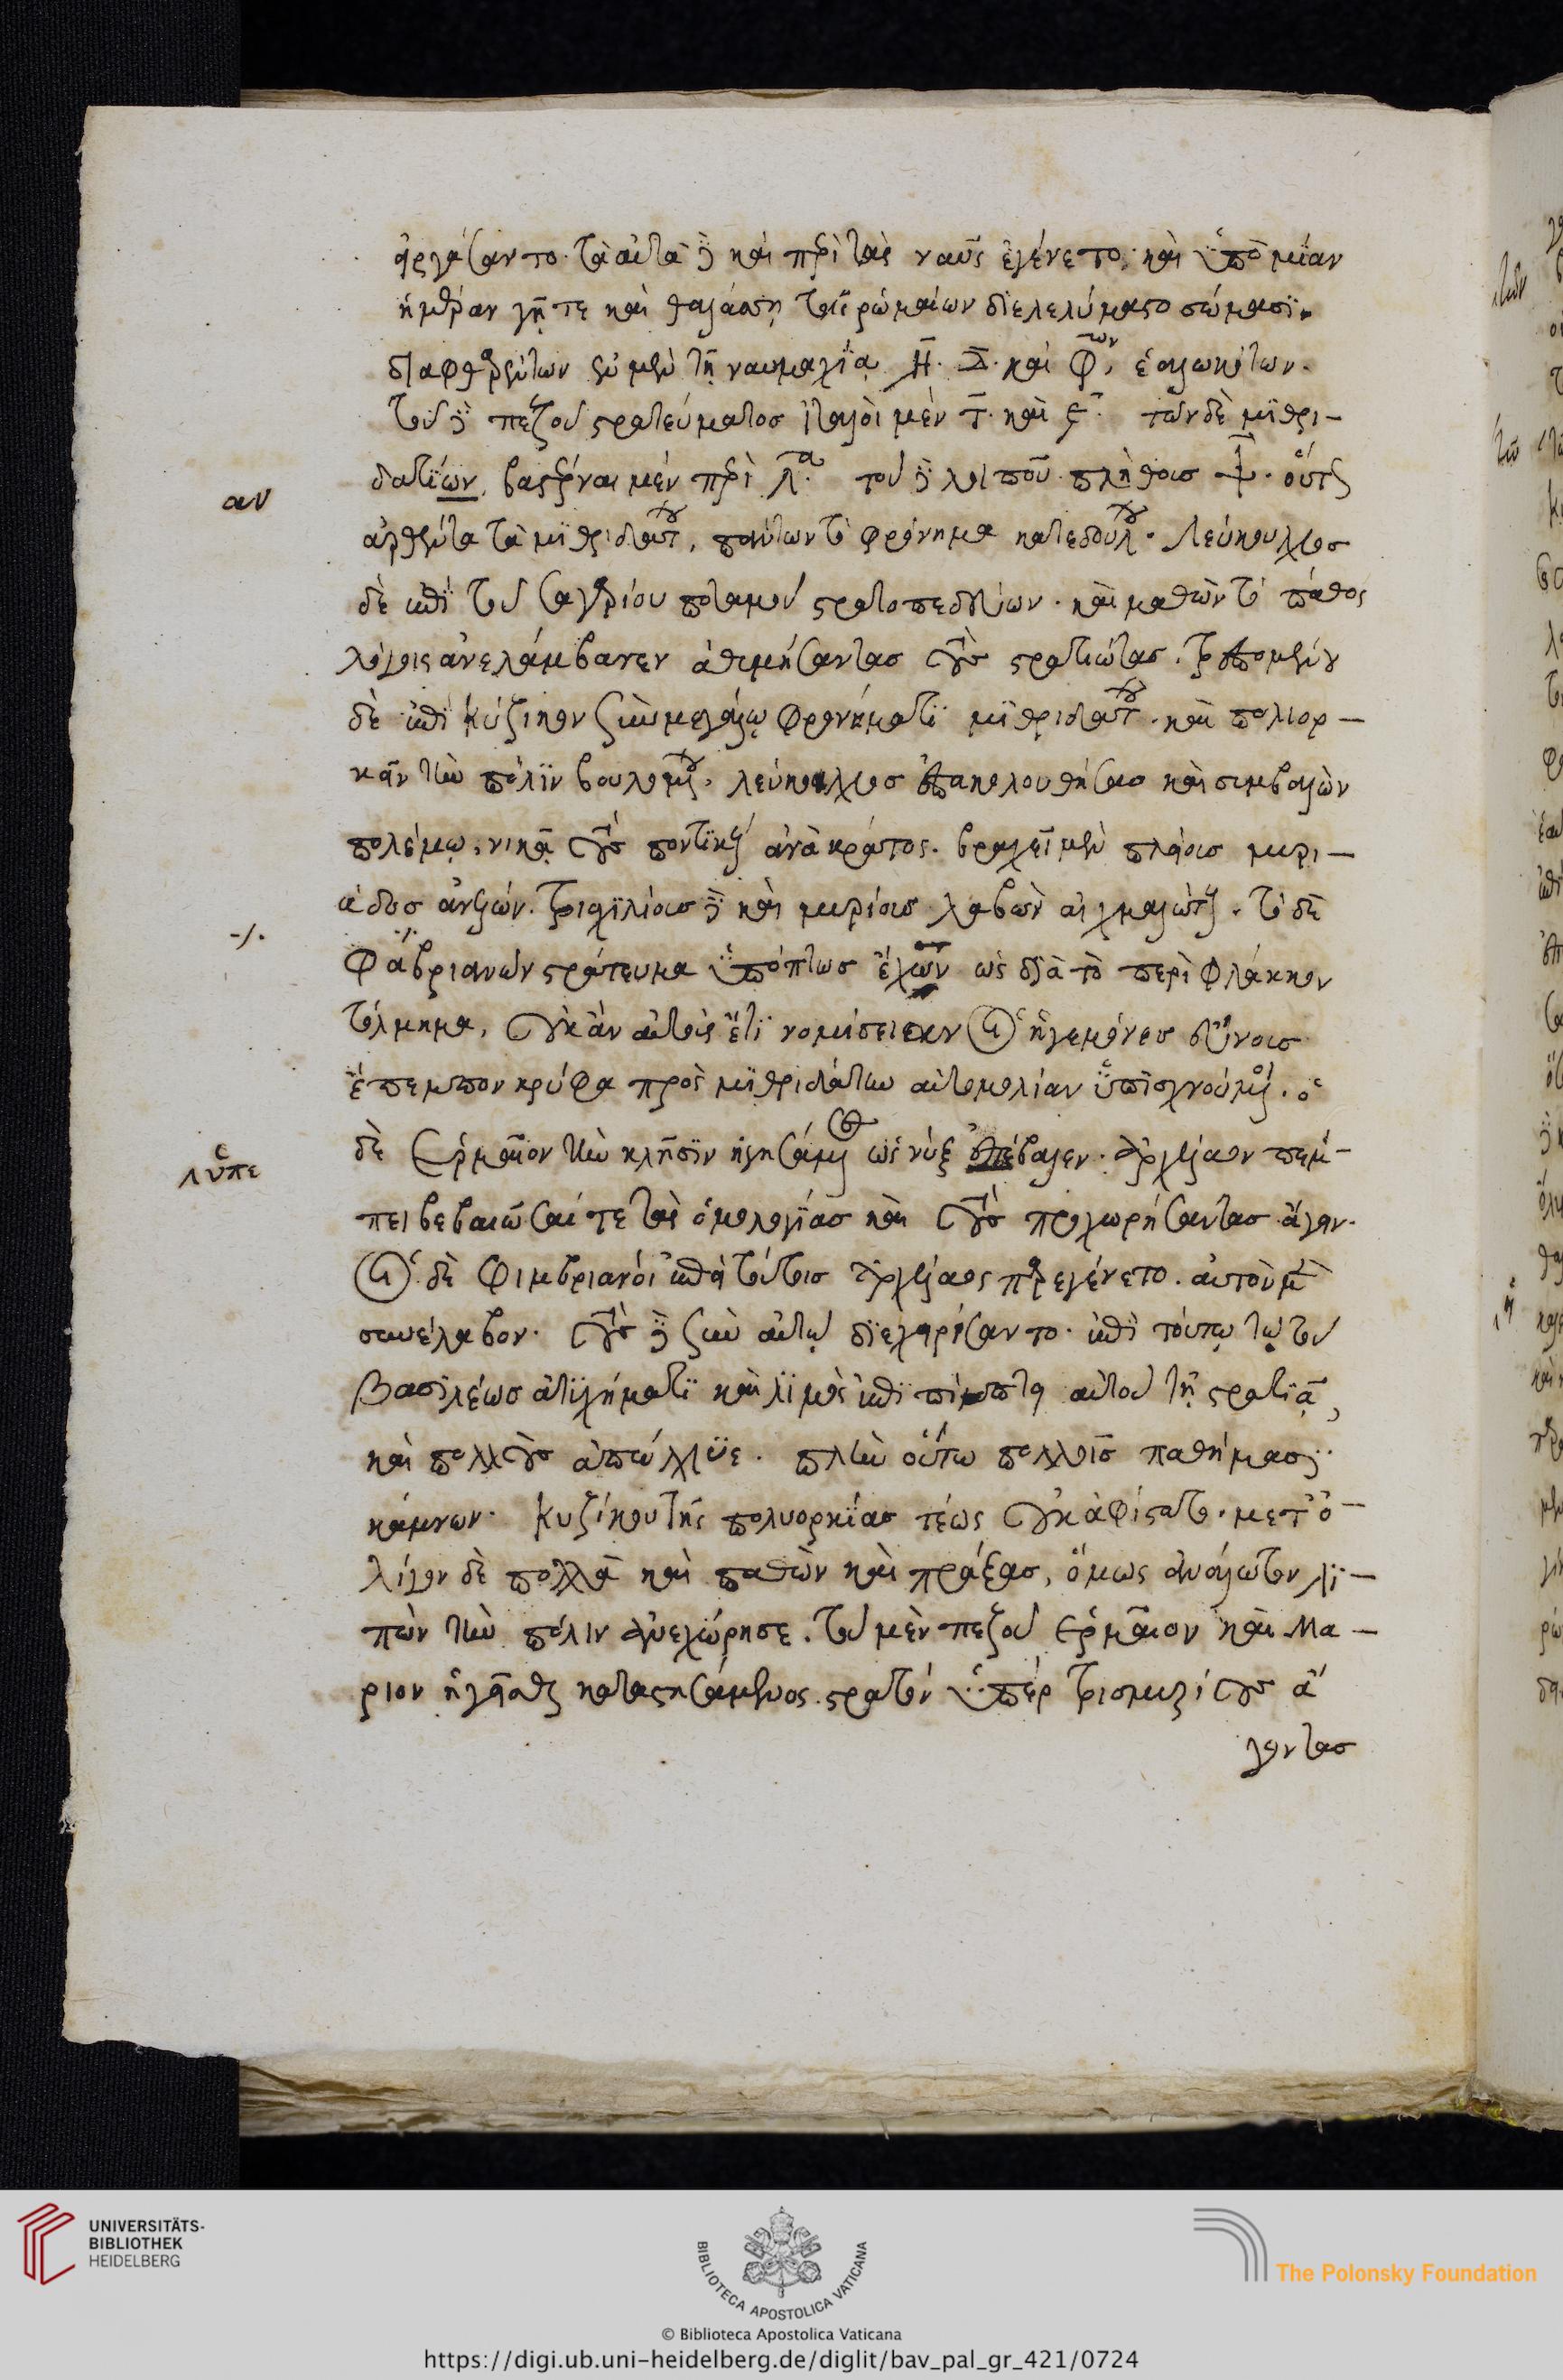 ἠργάσαντο. τὰ αὐτὰ δὲ καὶ περὶ τὰς ναῦς ἐγένετο, καὶ ὑπὸ μίαν
ἡμέραν γῆ τε καὶ θαλάσση τοῖς ῥωμαίων διελελύμαστο σώμασι.
διαφθαρέντων ἐν μὲν τῇ ναυμαχίᾳ Η̄. Δ̄. καὶ Φ̄ων, ἑαλωκότων.
τοῦ δὲ πεζοῦ στρατεύματος ἰταλοὶ μὲν τ̄. καὶ ε̄. τῶν δὲ μιθρι-
δατίων, βαστέρναι μὲν περὶ λ̄α. τοῦ δὲ λοιποῦ πλήθους ψ̄. οὕτως
αν
ἀρθέντα τὰ μιθριδάτου, πάντων τὸ φρόνημα κατεδούλου. λεύκουλλος
δὲ ἐπὶ τοῦ σαγγαρίου ποταμοῦ στρατοπεδεύων. καὶ μαθὼν τὸ πάθος
λόγοις ἀνελάμβανεν ἀθυμήσαντας τοὺς στρατιώτας. τρεπομένου
δὲ ἐπὶ κύζικον σὺν μεγάλῳ φρονήματι μιθριδάτου. καὶ πολιορ-
κεῖν τὴν πόλιν βουλομένου, λεύκουλλος ἐπακολουθήσας καὶ συμβαλὼν
πολέμῳ, νικᾷ τοὺς ποντικοὺς ἀνὰ κράτος. βραχεῖ μὲν πλείους μυρι-
άδος ἀνελών. τρισχιλίους δὲ καὶ μυρίους λαβὼν αἰχμαλώτους. τὸ δὲ
-/.
Φαβριανῶν στράτευμα ὑπόπτως ἔχων ὡς διὰ τὸ περὶ φλάκκον
τόλμημα, οὐκ ἂν αὐτοῖς ἔτι νομίσειεν οἱ ἡγεμόνες εὔνους
ἔπεμπον κρύφα πρὸς μιθριδάτην αὐτομολίαν ὑπισχνούμενοι. ὁ
δὲ ἕρμαιον τὴν κλῆσιν ἡγησάμενος ὡς νὺξ ἐπέβαλεν. ἀρχέλαον πέμ-
λυπε
πει βεβαιῶσαί τε τὰς ὁμολογίας καὶ τοὺς προχωρήσαντας ἄγειν.
οἱ δὲ φιμβριανοὶ ἐπεὶ τούτοις ἀρχέλαος παρεγένετο. αὐτὸν μὲν
συνέλαβον. τοὺς δὲ σὺν αὐτῷ διεχρήσαντο. ἐπὶ τούτῳ τῷ τοῦ
βασιλέως ἀτυχήματι καὶ λιμὸς ἐπιπίπτει αὐτοῦ τῇ στρατιᾷ,
καὶ πολλοὺς ἀπώλλυε. πλὴν οὕτω πολλοῖς παθήμασι
κάμνων. κυζίκου τῆς πολυορκίας τέως οὐκ ἀφίστατο. μετ’ ὀ-
λίγον δὲ πολλὰ καὶ παθὼν καὶ πράξας, ὅμως ἀνάλωτον λι-
πὼν τὴν πόλιν ἀνεχώρησε. τοῦ μὲν πεζοῦ ἕρμαιον καὶ μα-
ριον ἡγεῖσθαι καταστησάμενος. στρατὸν ὑπὲρ τρισμυρίους ἄ
γοντας
UNIVERSITÄTS-
BIBLIOTHEK
HEIDELBERG
BIBLIOTECA APOSTOLICA VATICANA
The Polonsky Foundation
© Biblioteca Apostolica Vaticana
https://digi.ub.uni-heidelberg.de/diglit/bav_pal_gr_421/0724